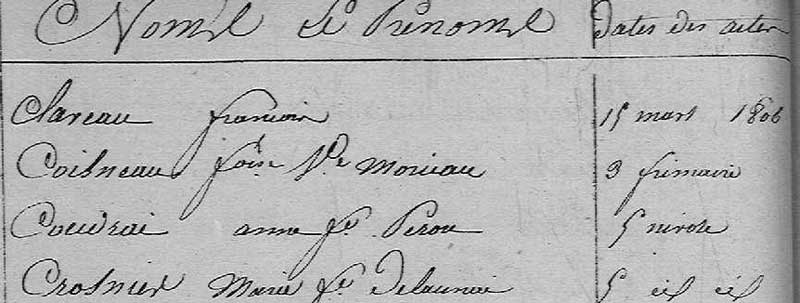 Noms et Prénoms Dates des actes
Clareau francois 15 mars 1806
Coisneau foise Ve Moriceau 3 frimaire
Couvrai anne fe Perou 5 nivose
Crosnier Marie fe Delaunai 5